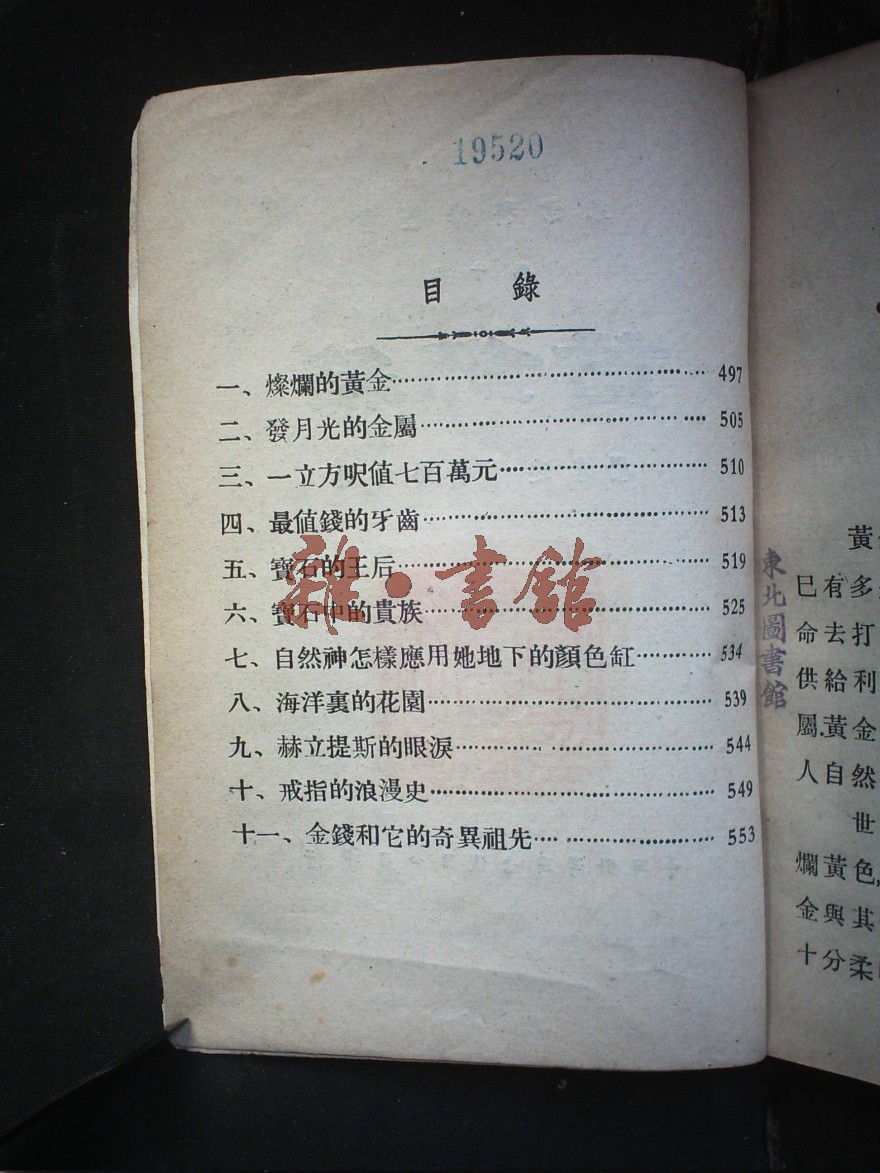 19520
目錄
一、燦爛的黃金 497
二、發月光的金屬 505
三、一立方呎值七百萬元 510
四、最值錢的牙齒 513
五、寶石的王后 519
六、寶石中的貴族 525
七、自然神怎樣應用她地下的顏色缸 534
八、海洋裏的花園 539
九、赫立提斯的眼淚 544
十、戒指的浪漫史 549
十一、金錢和它的奇異祖先 553
雜·書館
東北圖書館
黃
已有多
命去打
供給利
屬.黃金
人自然
世
爛黃色,
金與其
十分柔